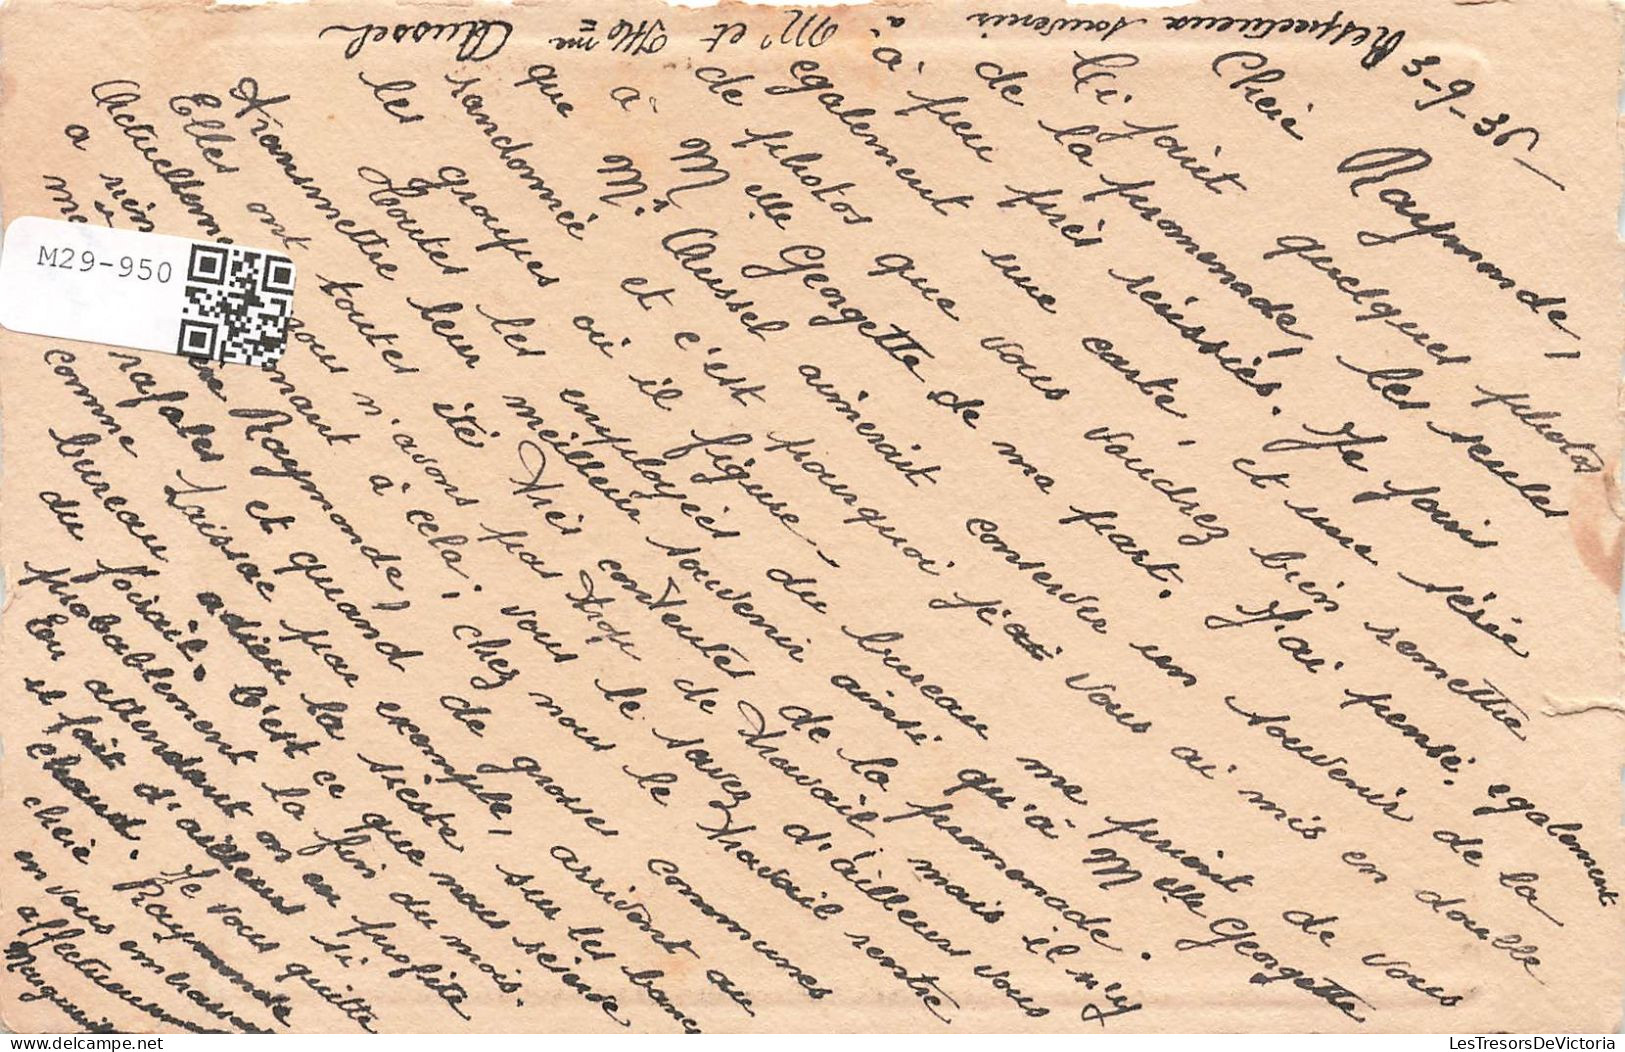 3-9-35
Chère Raymonde,
Ci joint quelques photos
de la promenade, les seules
à peu près réussies. Je joins
également une carte, et une série
de photos que vous voudrez bien remettre
à Melle Georgette de ma part. J'ai pensé également
que Mr Clussel aimerait conserver un souvenir de la
randonnée et c'est pourquoi j'ai vous ai mis en double
les groupes où il figure.
Toutes les employées du bureau me prient de vous
transmettre leur meilleur souvenir ainsi qu'à Melle Georgette
Elles ont toutes été très contentes de la promenade.
Actuellement nous n'avons pas trop de travail, mais il n'y
a rien d'étonnant à cela; vous le savez d'ailleurs vous
même chère Raymonde, chez nous le travail rentre
rafales et quand de grosses communes
comme Laissac par exemple, arrivent au
bureau adieu la sieste sur les bancs
du foirail. C'est ce que nous réserve
probablement la fin du mois.
En attendant on en profite
et fait d'ailleurs si
chaud. Je vous quitte
chère Raymonde
en vous embrassant
affectueusement
Respectueux souvenir
à Mr et Mme Clussel
M29-950
LesTresorsDeVictoria.com